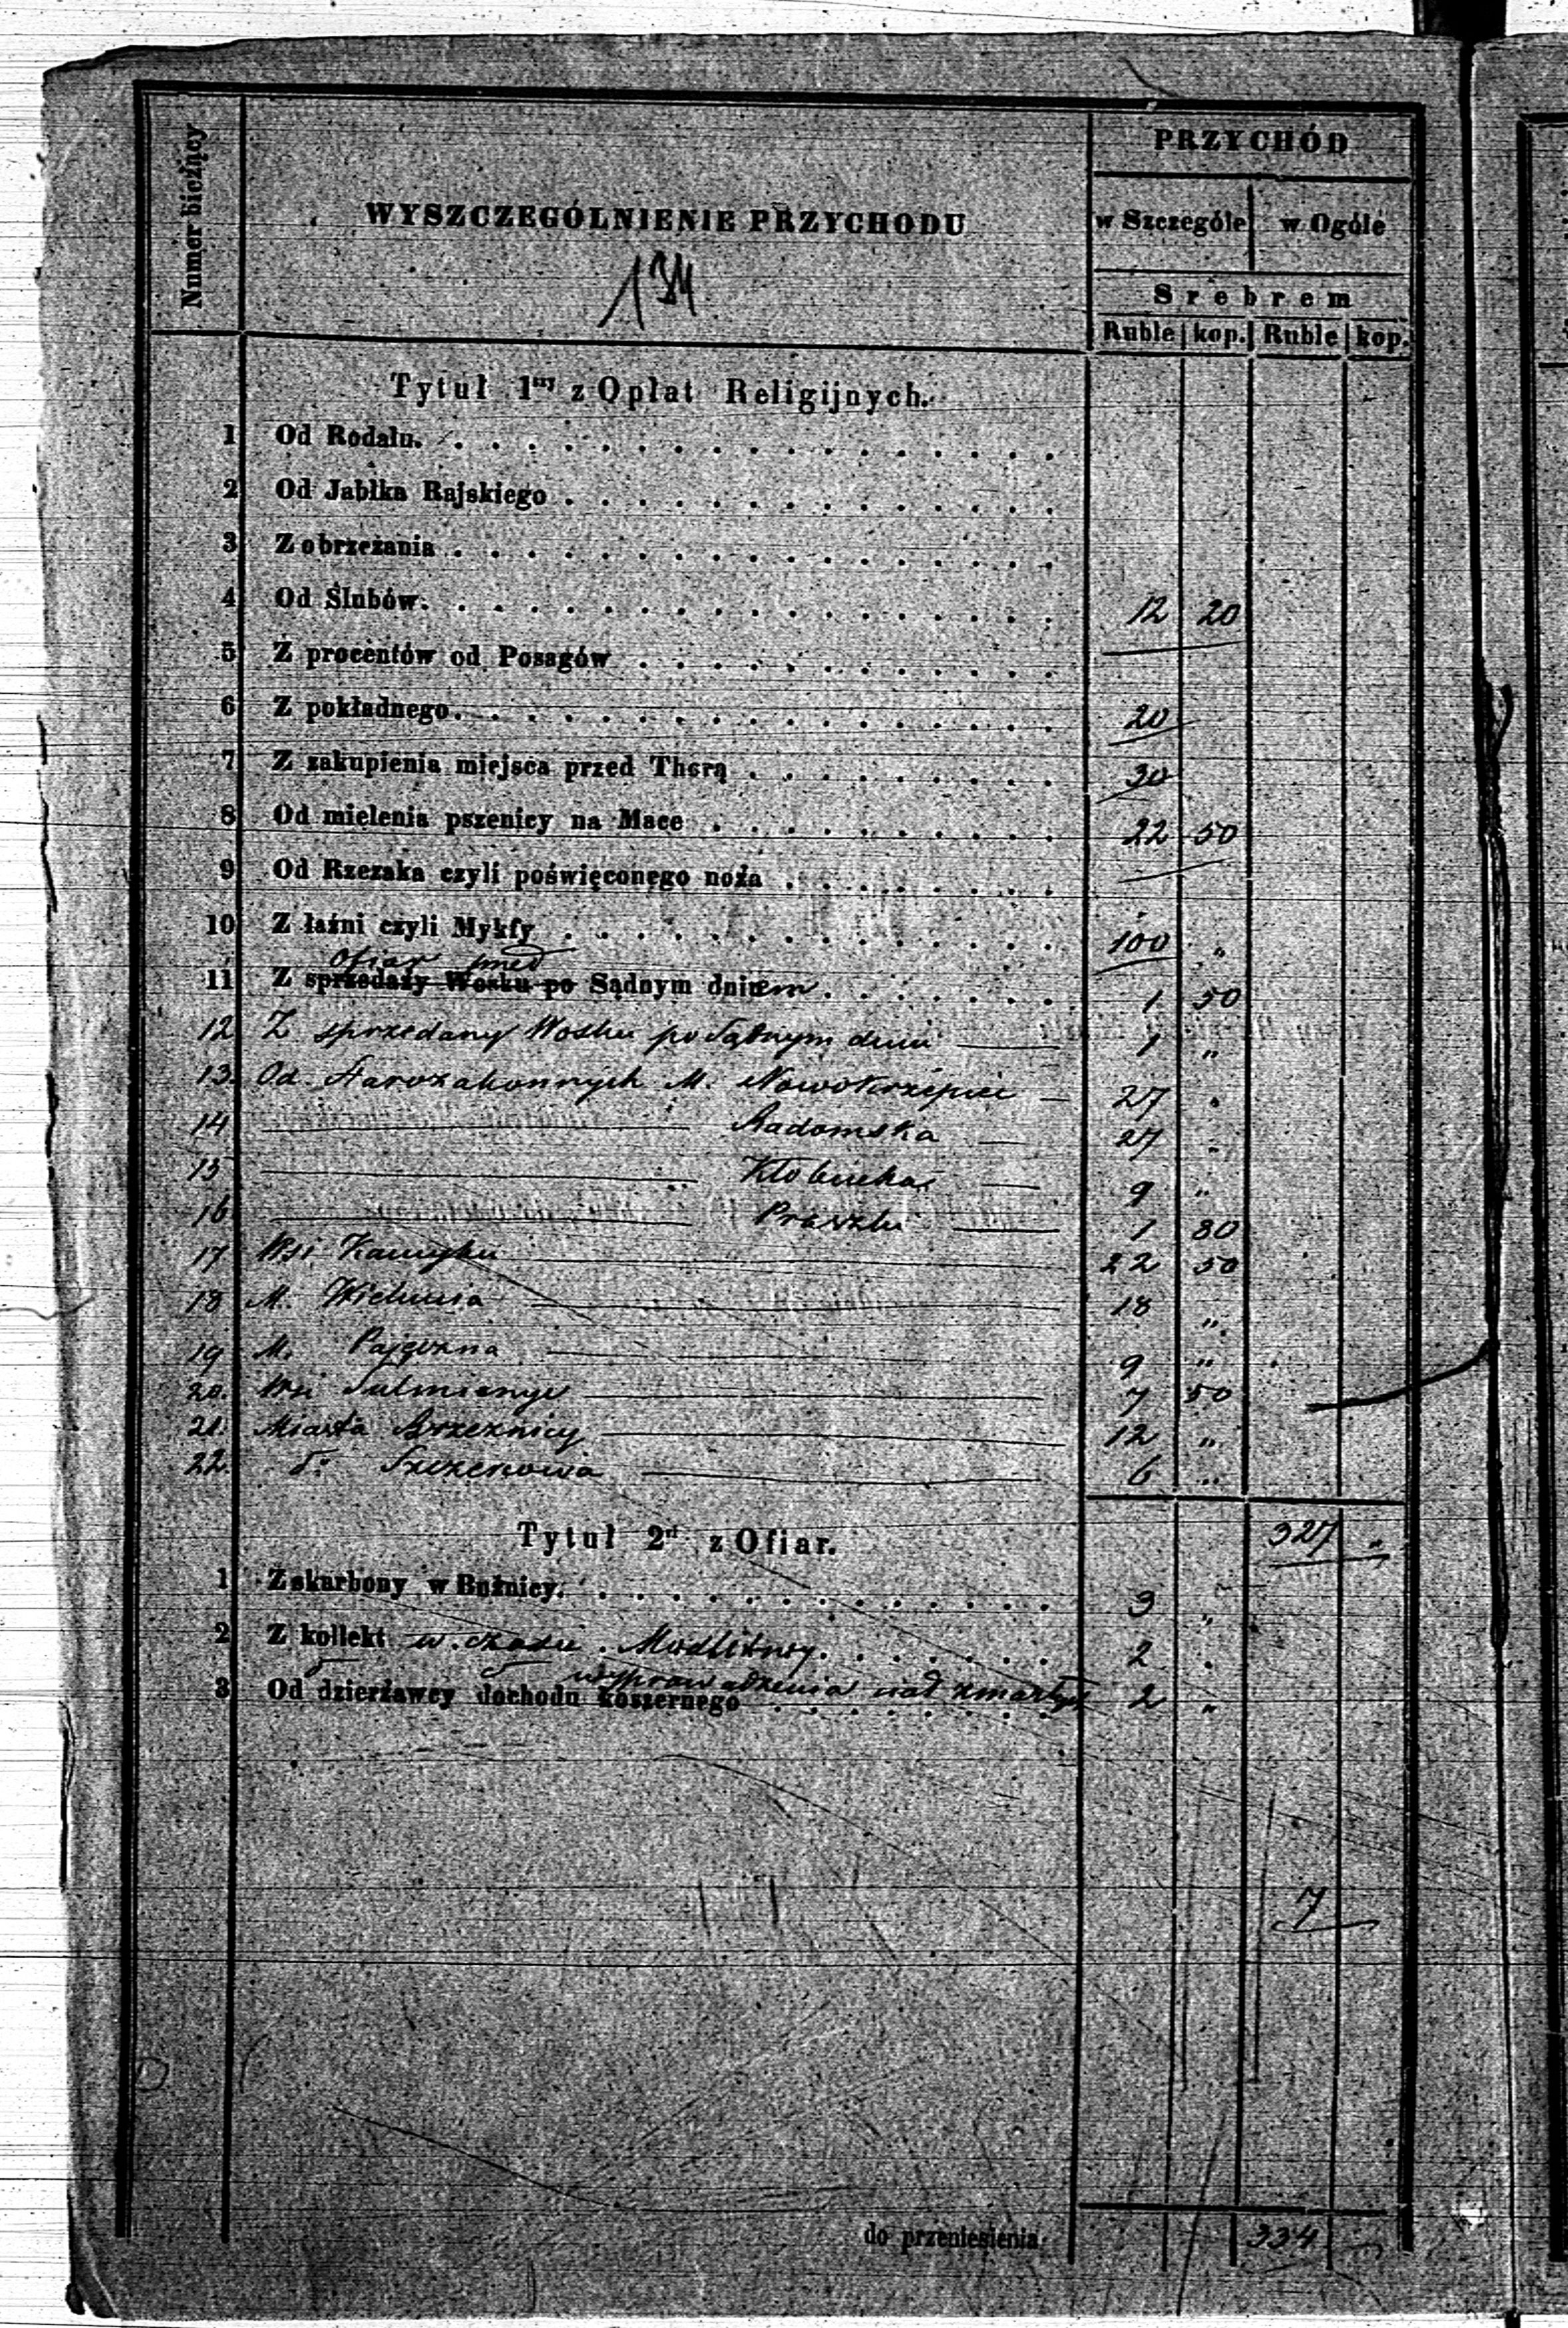 Numer bieżący
WYSZCZEGÓLNIENIE PRZYCHODU
134
PRZYCHÓD
w Szczególe w Ogóle
Srebrem
Ruble kop. Ruble kop.
Tytuł 1ny z Opłat Religijnych.
1 Od Rodału.
2 Od Jabłka Rajskiego
3 Z obrzezania
4 Od Ślubów. 12 20
5 Z procentów od Posagów
6 Z pokładnego. 20
7 Z zakupienia miejsca przed Thorą 30
8 Od mielenia pszenicy na Mace 22 50
9 Od Rzezaka czyli poświęconego noża
10 Z łaźni czyli Mykfy 100 "
ofiar przed
11 Z sprzedaży Wosku po Sądnym dniem 1 50
12 Z sprzedany Wosku po Sądnym dniu 1 "
13. Od Starozakonnych M. Nowokrzepic 27 "
14 Radomska 27 "
15 Kłobucka 9 "
16 Praszki 1 80
17 Wsi Kamyku 22 50
18 M. Wielunia 18 "
19 M. Pajęczna 9 "
20. Wsi Sulmierzyc 7 50
21. Miasta Brzeznicy 12 "
22. do Szczercowa 6 "
327 "
Tytuł 2gi z Ofiar.
1 Z skarbony w Bużnicy. 3 "
2 Z kollekt w czasie Modlitwy. 2 "
wyprowadzenia ciał zmarłych
3 Od dzierżawcy dochodu koszernego 2 "
7
do przeniesienia 334